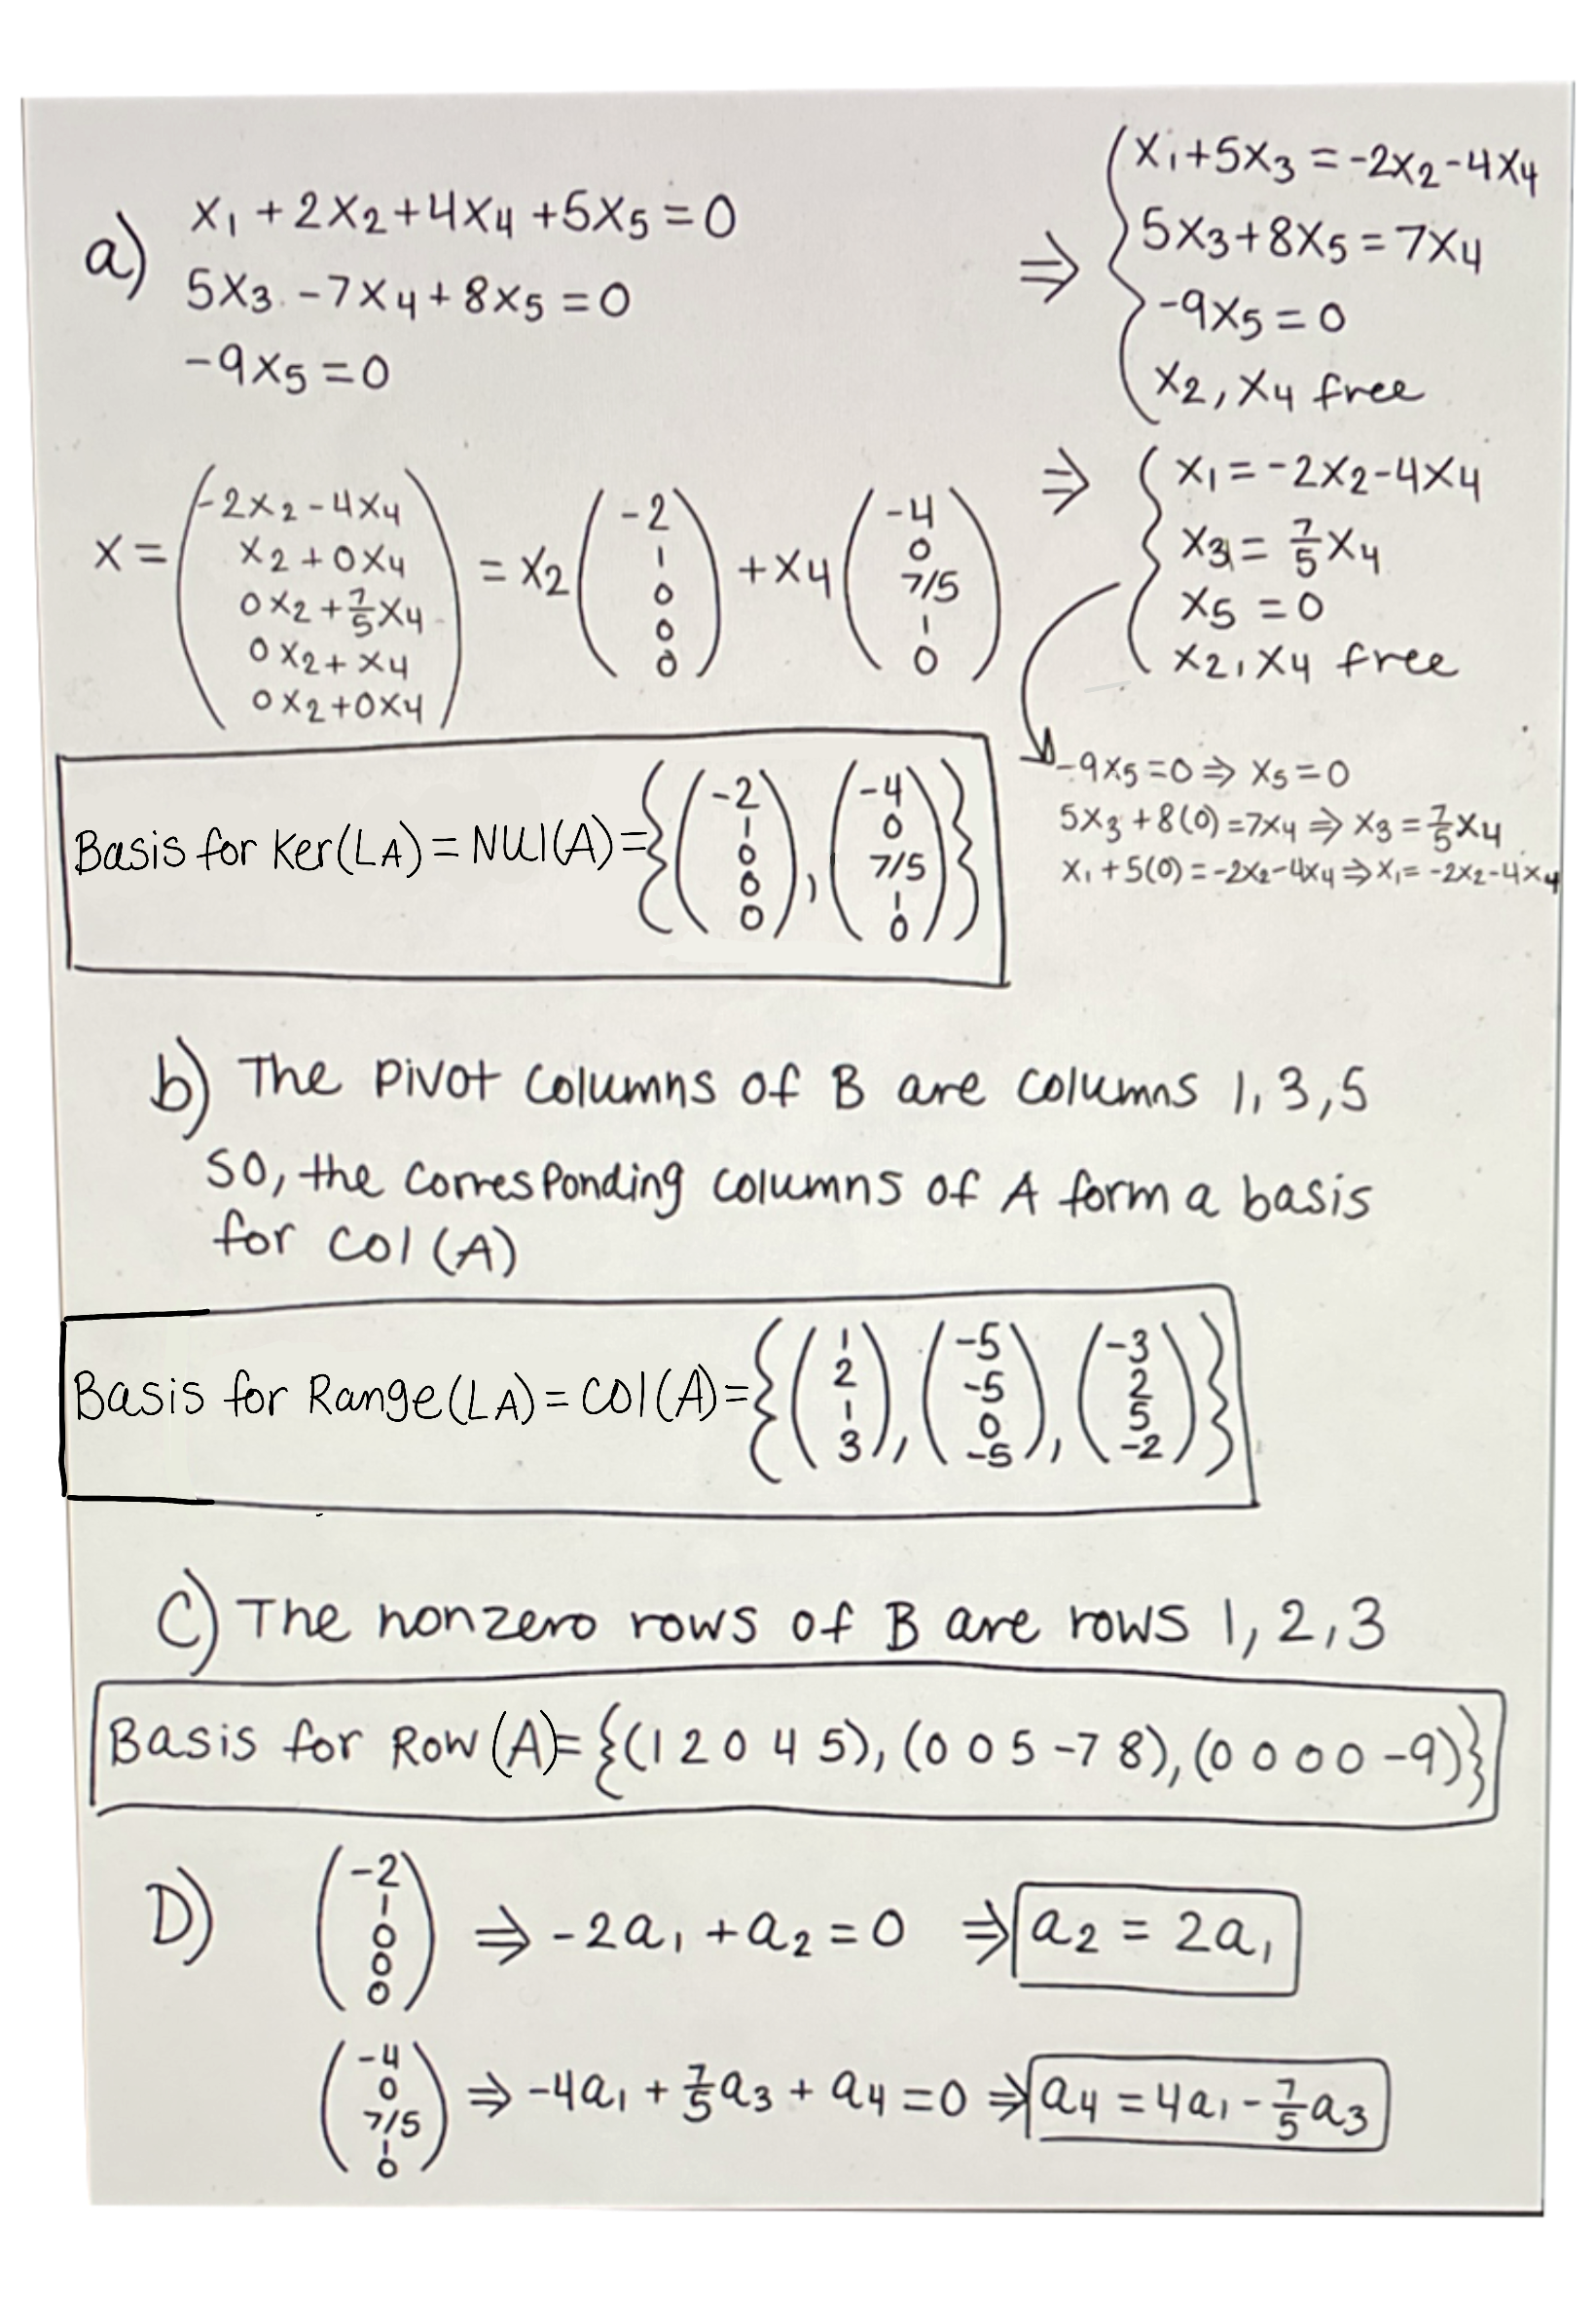 a) x₁ + 2x₂ + 4x₄ + 5x₅ = 0
5x₃ - 7x₄ + 8x₅ = 0
-9x₅ = 0
⇒ { x₁ + 5x₃ = -2x₂ - 4x₄
5x₃ + 8x₅ = 7x₄
-9x₅ = 0
x₂, x₄ free
⇒ { x₁ = -2x₂ - 4x₄
x₃ = 7/5 x₄
x₅ = 0
x₂, x₄ free
-9x₅ = 0 ⇒ x₅ = 0
5x₃ + 8(0) = 7x₄ ⇒ x₃ = 7/5 x₄
x₁ + 5(0) = -2x₂ - 4x₄ ⇒ x₁ = -2x₂ - 4x₄
x = ( -2x₂ - 4x₄
x₂ + 0x₄
0x₂ + 7/5 x₄
0x₂ + x₄
0x₂ + 0x₄ ) = x₂ ( -2 1 0 0 0 ) + x₄ ( -4 0 7/5 1 0 )
Basis for Ker(LA) = NUl(A) = { ( -2 1 0 0 0 ), ( -4 0 7/5 1 0 ) }
b) The pivot columns of B are columns 1, 3, 5
so, the corresponding columns of A form a basis
for Col(A)
Basis for Range(LA) = COl(A) = { ( 1 2 1 3 ), ( -5 -5 0 -5 ), ( -3 2 5 -2 ) }
C) The nonzero rows of B are rows 1, 2, 3
Basis for Row(A) = {(1 2 0 4 5), (0 0 5 -7 8), (0 0 0 0 -9)}
D) ( -2 1 0 0 0 ) ⇒ -2a₁ + a₂ = 0 ⇒ a₂ = 2a₁
( -4 0 7/5 1 0 ) ⇒ -4a₁ + 7/5 a₃ + a₄ = 0 ⇒ a₄ = 4a₁ - 7/5 a₃